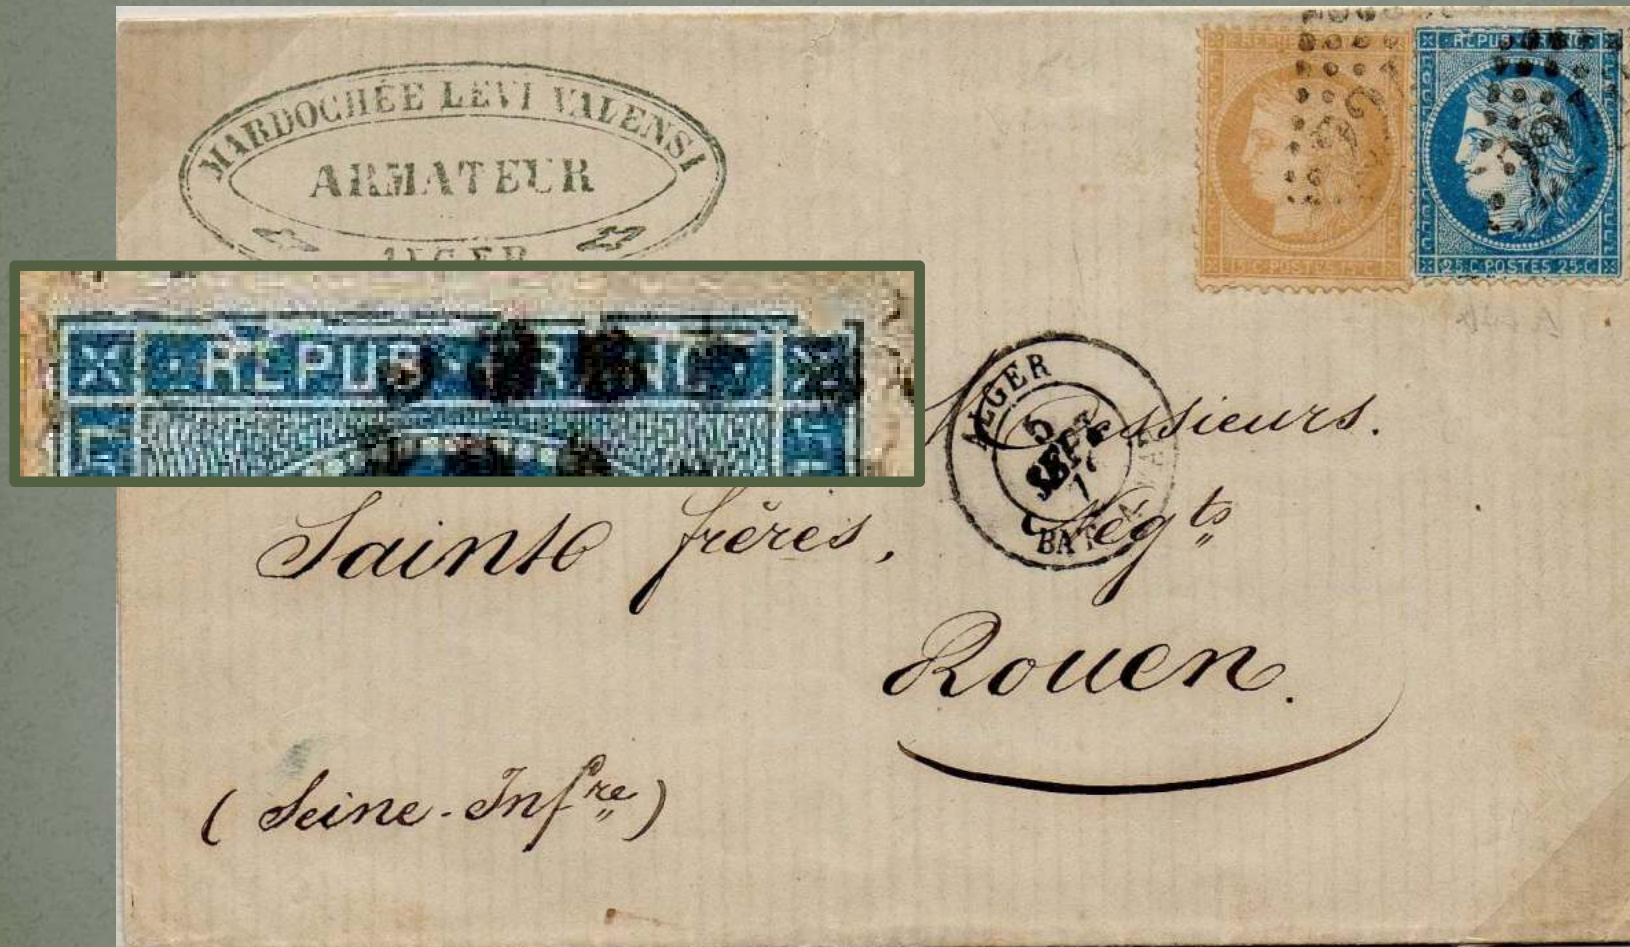 MARDOCHÉE LEVI VALENSI
ARMATEUR
ALGER
REPUB FRANC
15·C·POSTES 15·C
REPUB FRANC
25·C·POSTES 25·C
REPUB · FRANC
ALGER
5
SEPT
7
Messieurs.
Sainte frères, Negts
Rouen.
(Seine-Infre)